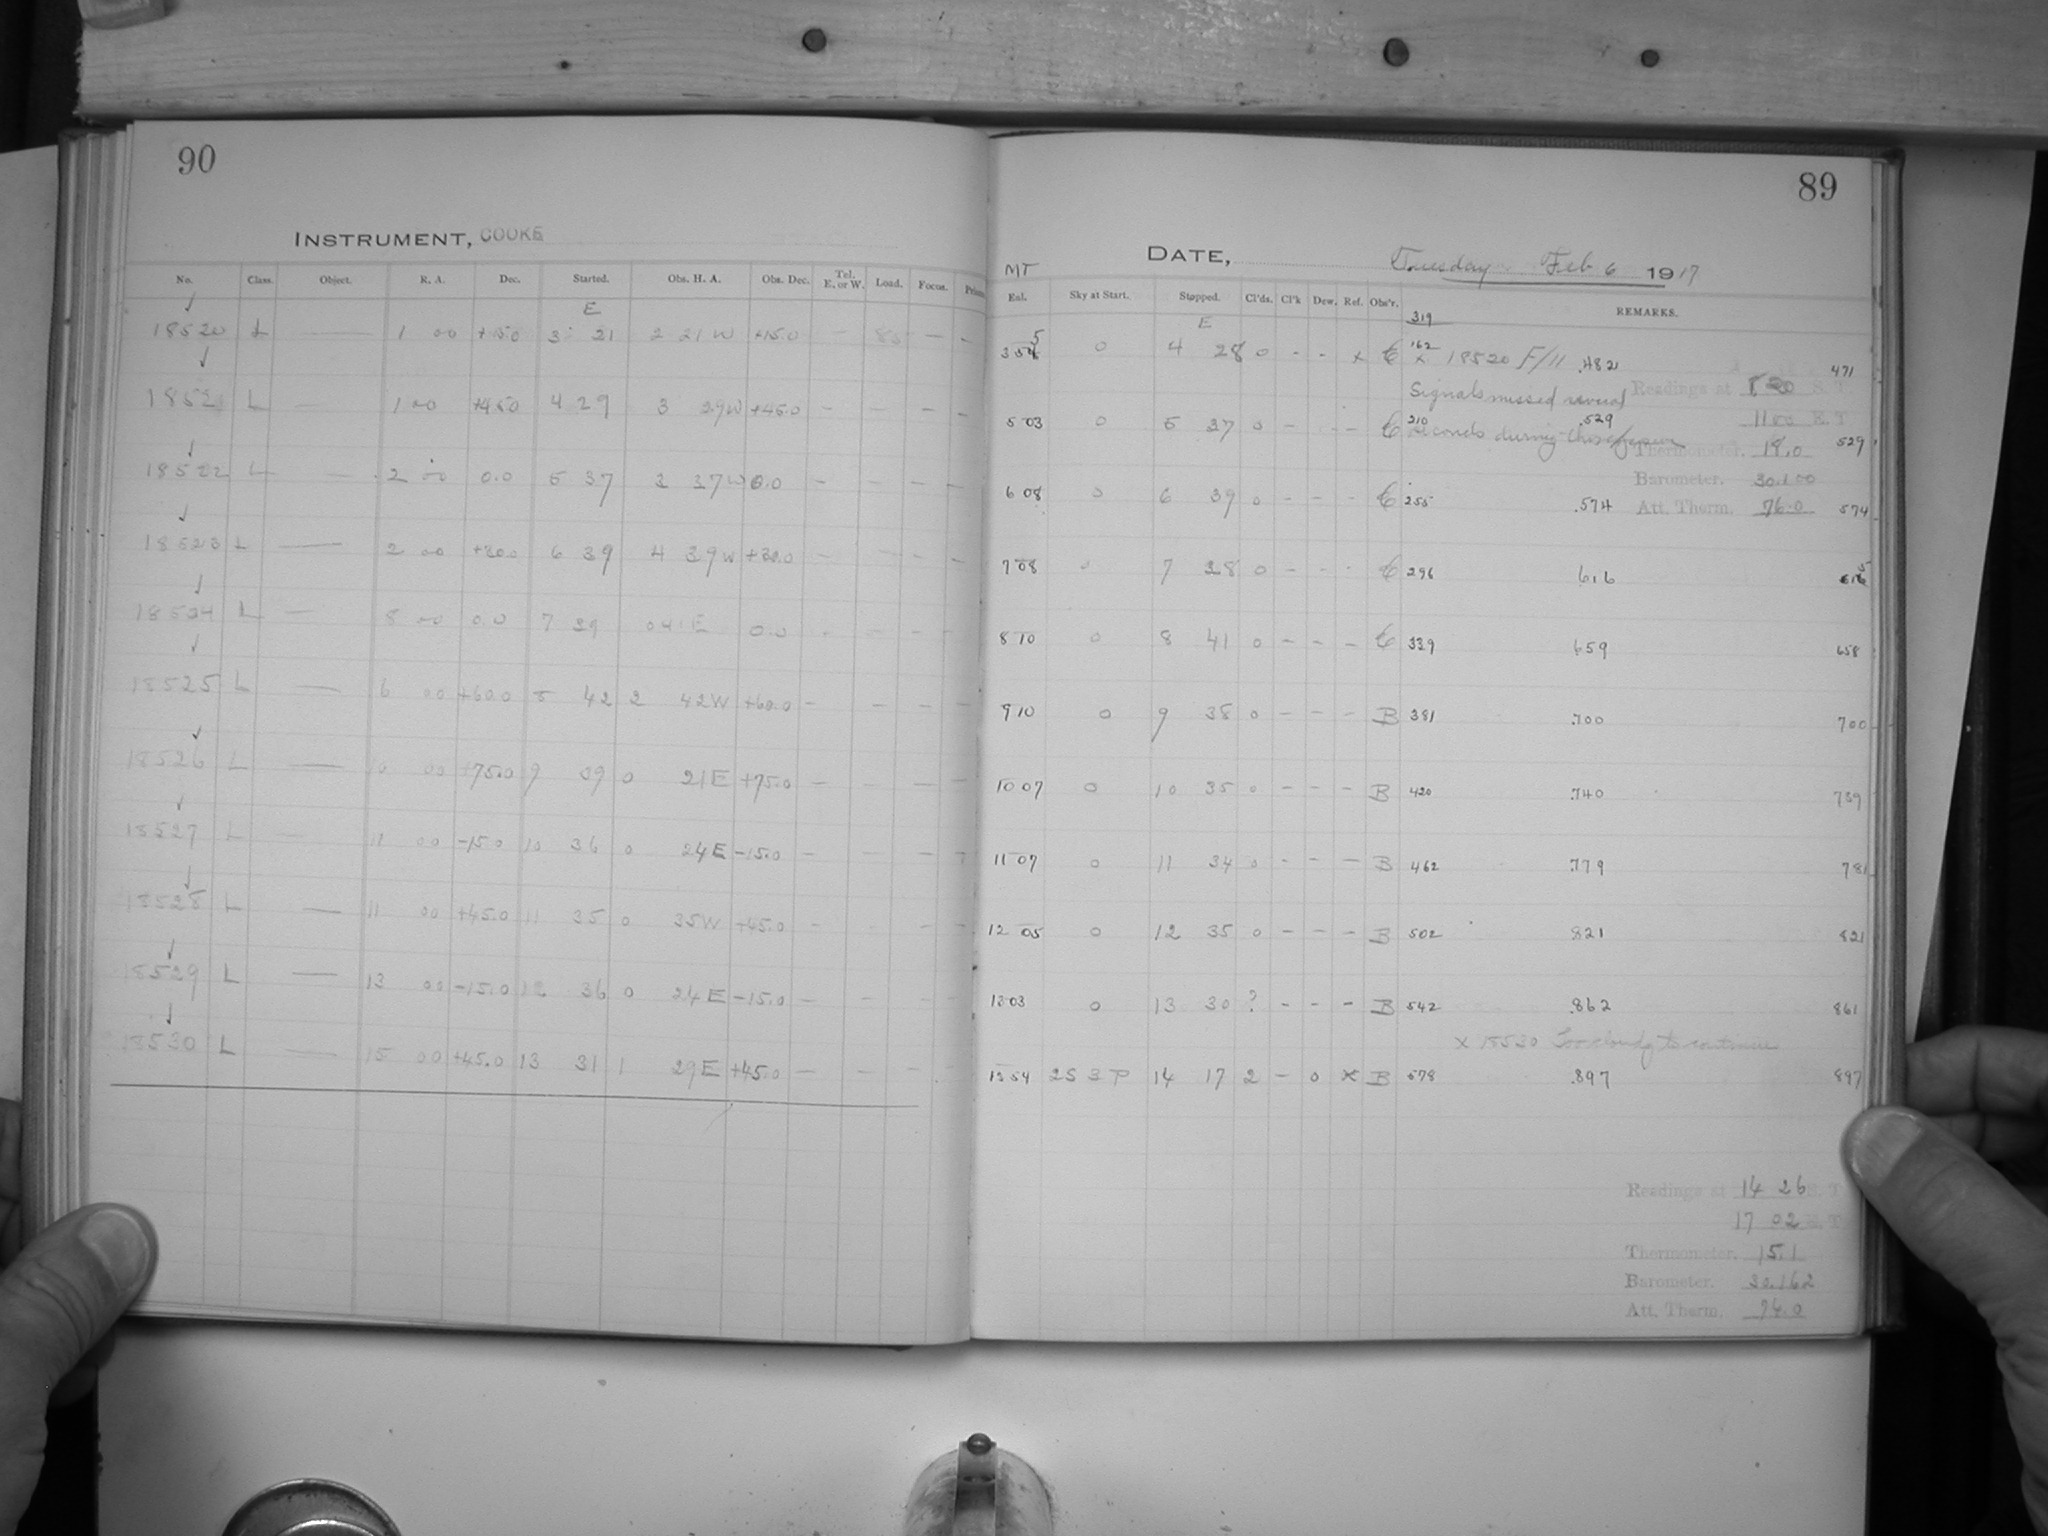 90
INSTRUMENT, COOKE
No. Class. Object. R. A. Dec. Started. Obs. H. A. Obs. Dec. Tel. E. or W. Load. Focus.
E
18520 L — 1 00 +15.0 3 21 2 21 W +15.0 — 85 — –
1852 L — 1 00 +45.0 4 29 3 29 W +45.0 – – – –
18522 L — 2 00 0.0 5 37 3 37 W 0.0 – – – –
18523 L — 2 00 +30.0 6 39 4 39 W +30.0 – – – –
18524 L — 8 00 0.0 7 39 0 41 E 0.0 – – – –
18525 L — 6 00 +60.0 8 42 2 42 W +60.0 – – – –
18526 L — 00 +75.0 9 09 0 21 E +75.0 – – – –
18527 L — 11 00 –15.0 10 36 0 24 E –15.0 – – – –
18528 L — 11 00 +45.0 11 35 0 35 W +45.0 – – –
18529 L — 13 00 –15.0 12 36 0 24 E –15.0 – – – –
18530 L — 15 00 +45.0 13 31 1 29 E +45.0 – – – –
89
DATE, Tuesday Feb 6 1917
MT
Eql. Sky at Start. Stopped. Cl'ds. Cl'k Dew. Ref. Obs'r. REMARKS.
E 319
3 54 5 0 4 28 0 – – x C 162 x 18520 F/11 .482 471
Readings at S. T
Signals missed several
11 00 E. T
5 03 0 5 37 0 – – – C 210 seconds during .529 529
Thermometer. 18.0
Barometer. 30.100
6 08 0 6 39 0 – – – C 255 .574 574
Att. Therm. 76.0
7 08 0 7 38 0 – – – C 296 616
8 10 0 8 41 0 – – – C 339 659 658
9 10 0 9 38 0 – – – B 381 .700 700
10 07 0 10 35 0 – – – B 420 .740 739
11 07 0 11 34 0 – – – B 462 .779 781
12 05 0 12 35 0 – – – B 502 821 821
13 03 0 13 30 ? – – – B 542 .862 861
x 18530 Too cloudy to continue
13 54 2S 3 P 14 17 2 – 0 x B 578 .897 897
Readings at 14 26 S. T
17 02 E. T
Thermometer. 15.1
Barometer. 30.162
Att. Therm. 74.0